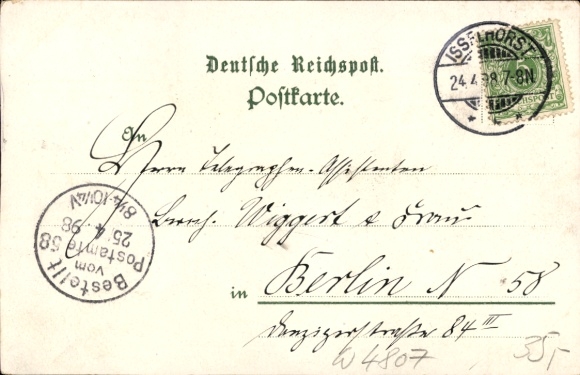 Deutsche Reichspost.
Postkarte.
An
Herrn Telegraphen-Assistenten
Wiggert & Frau
in Berlin N 58
Danzigerstraße 84 III
W 4807
35,-
ISSELHORST
24.4.98.7-8N.
Bestellt
vom
Postamte 58
25.4.98
8¼-10¼V
5